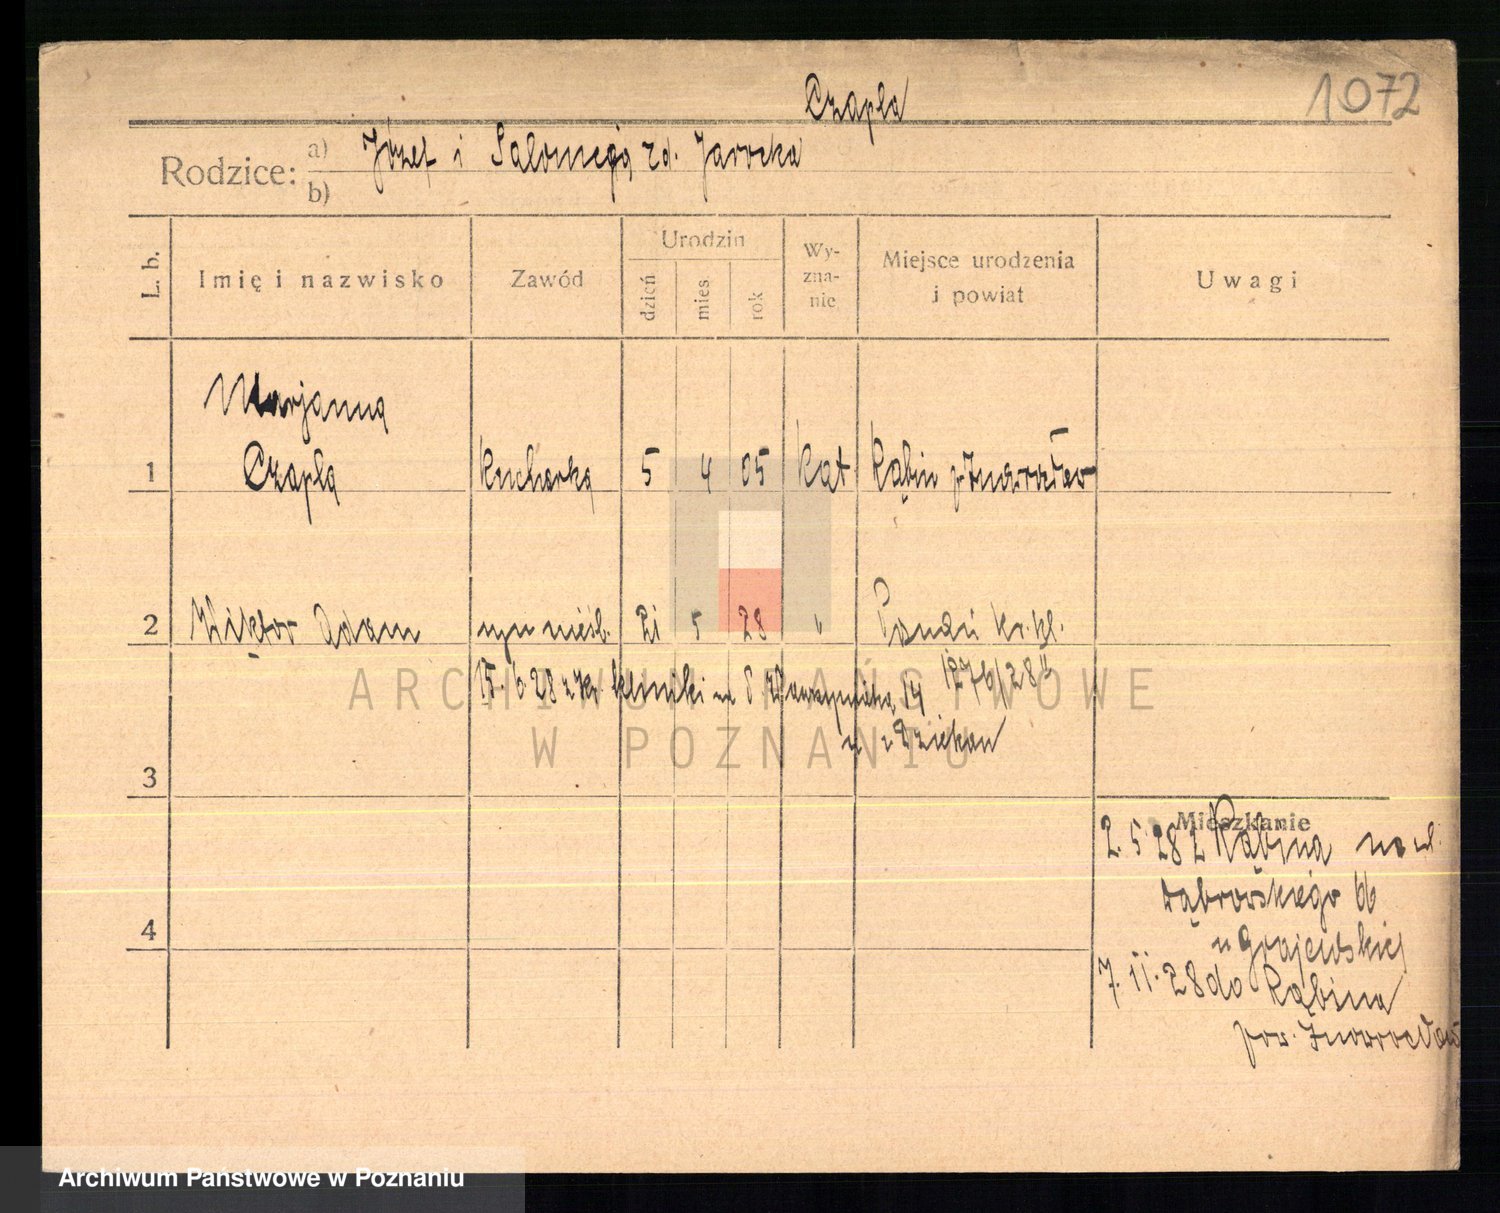 Czapla
1072
Rodzice: a) Józef i Salomeja zd. Jarocka
b)
L. b.
Imię i nazwisko
Zawód
Urodzin
dzień
mies
rok
Wy-
zna-
nie
Miejsce urodzenia
i powiat
Uwagi
Marjanna
1 Czapla kucharka 5 4 05 kat Rąbin p Inowrocław
2 Wiktor Adam syn nieśl. 21 5 28 " Poznań
15. 6 28 z kliniki 14 1276/28
3
Mieszkanie
2. 5 28 z Rąbina na ul.
Dąbrowskiego 66
u Grajewskiej
4
7. 11. 28 do Rąbina
pow. Inowrocław
ARCHIWUM PAŃSTWOWE
W POZNANIU
Archiwum Państwowe w Poznaniu